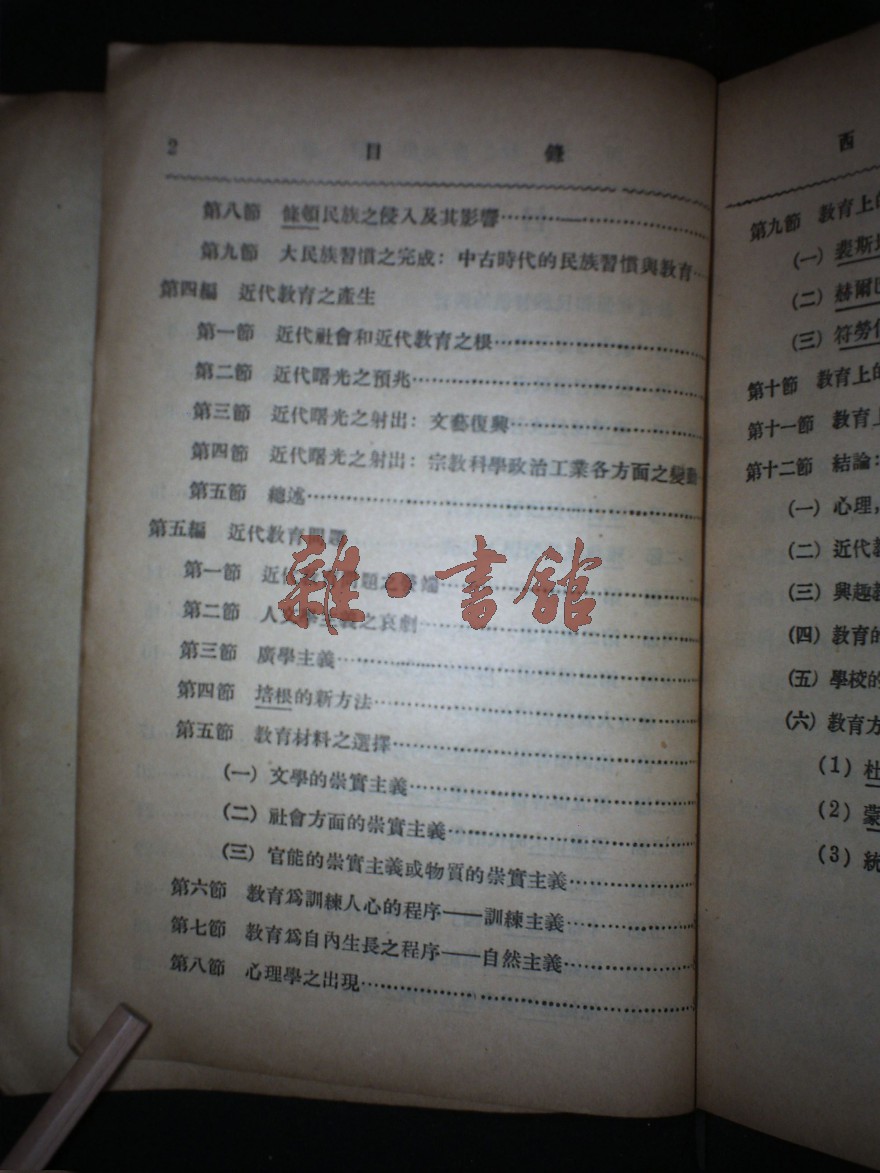 2 目 錄
第八節 條頓民族之侵入及其影響
第九節 大民族習慣之完成：中古時代的民族習慣與教育
第四編 近代教育之產生
第一節 近代社會和近代教育之根
第二節 近代曙光之預兆
第三節 近代曙光之射出：文藝復興
第四節 近代曙光之射出：宗教科學政治工業各方面之變動
第五節 總述
第五編 近代教育問題
第一節 近代教育問題之發端
第二節 人文主義之哀劇
第三節 廣學主義
第四節 培根的新方法
第五節 教育材料之選擇
（一）文學的崇實主義
（二）社會方面的崇實主義
（三）官能的崇實主義或物質的崇實主義
第六節 教育爲訓練人心的程序——訓練主義
第七節 教育爲自內生長之程序——自然主義
第八節 心理學之出現
雜·書舘
西
第九節 教育上的
（一）裴斯
（二）赫爾巴
（三）符勞
第十節 教育上的
第十一節 教育上
第十二節 結論：
（一）心理，
（二）近代教
（三）興趣
（四）教育的
（五）學校的
（六）教育方
(1) 杜
(2) 蒙
(3) 統